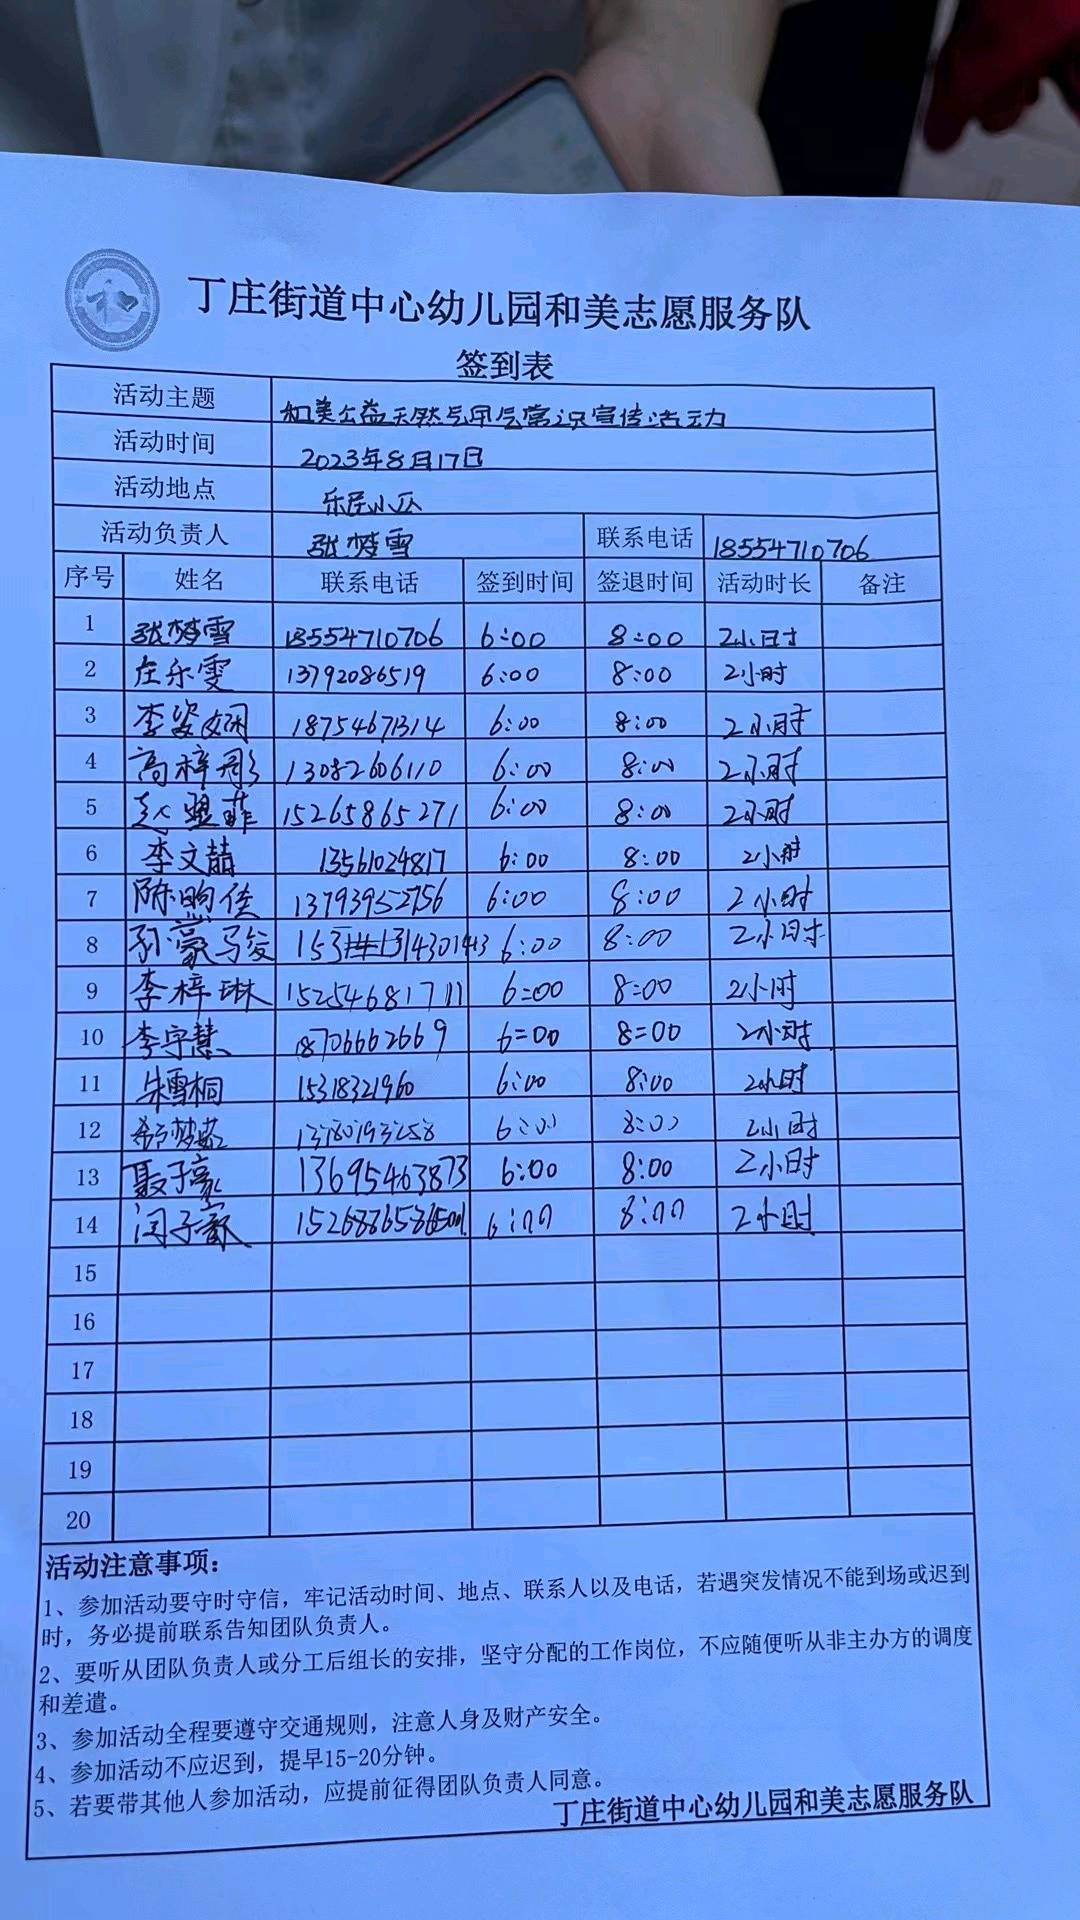 丁庄街道中心幼儿园和美志愿服务队
签到表
活动主题 和美公益天然气用气常识宣传活动
活动时间 2023年8月17日
活动地点 乐居小区
活动负责人 张梦雪 联系电话 18554710706
序号 姓名 联系电话 签到时间 签退时间 活动时长 备注
1 张梦雪 18554710706 6:00 8:00 2小时
2 庄乐雯 13792086519 6:00 8:00 2小时
3 李姿娴 18754671314 6:00 8:00 2小时
4 高梓彤 13082606110 6:00 8:00 2小时
5 赵盟菲 15265865271 6:00 8:00 2小时
6 李文喆 13561024817 6:00 8:00 2小时
7 陈昫佳 13793952756 6:00 8:00 2小时
8 孙豪骏 6:00 8:00 2小时
9 李梓琳 15254681711 6:00 8:00 2小时
10 李宇慧 18706662669 6:00 8:00 2小时
11 朱雪桐 15318321960 6:00 8:00 2小时
12 6:00 8:00 2小时
13 聂子豪 13695463873 6:00 8:00 2小时
14 闫子豪 6:00 8:00 2小时
15
16
17
18
19
20
活动注意事项：
1、参加活动要守时守信，牢记活动时间、地点、联系人以及电话，若遇突发情况不能到场或迟到
时，务必提前联系告知团队负责人。
2、要听从团队负责人或分工后组长的安排，坚守分配的工作岗位，不应随便听从非主办方的调度
和差遣。
3、参加活动全程要遵守交通规则，注意人身及财产安全。
4、参加活动不应迟到，提早15-20分钟。
5、若要带其他人参加活动，应提前征得团队负责人同意。
丁庄街道中心幼儿园和美志愿服务队